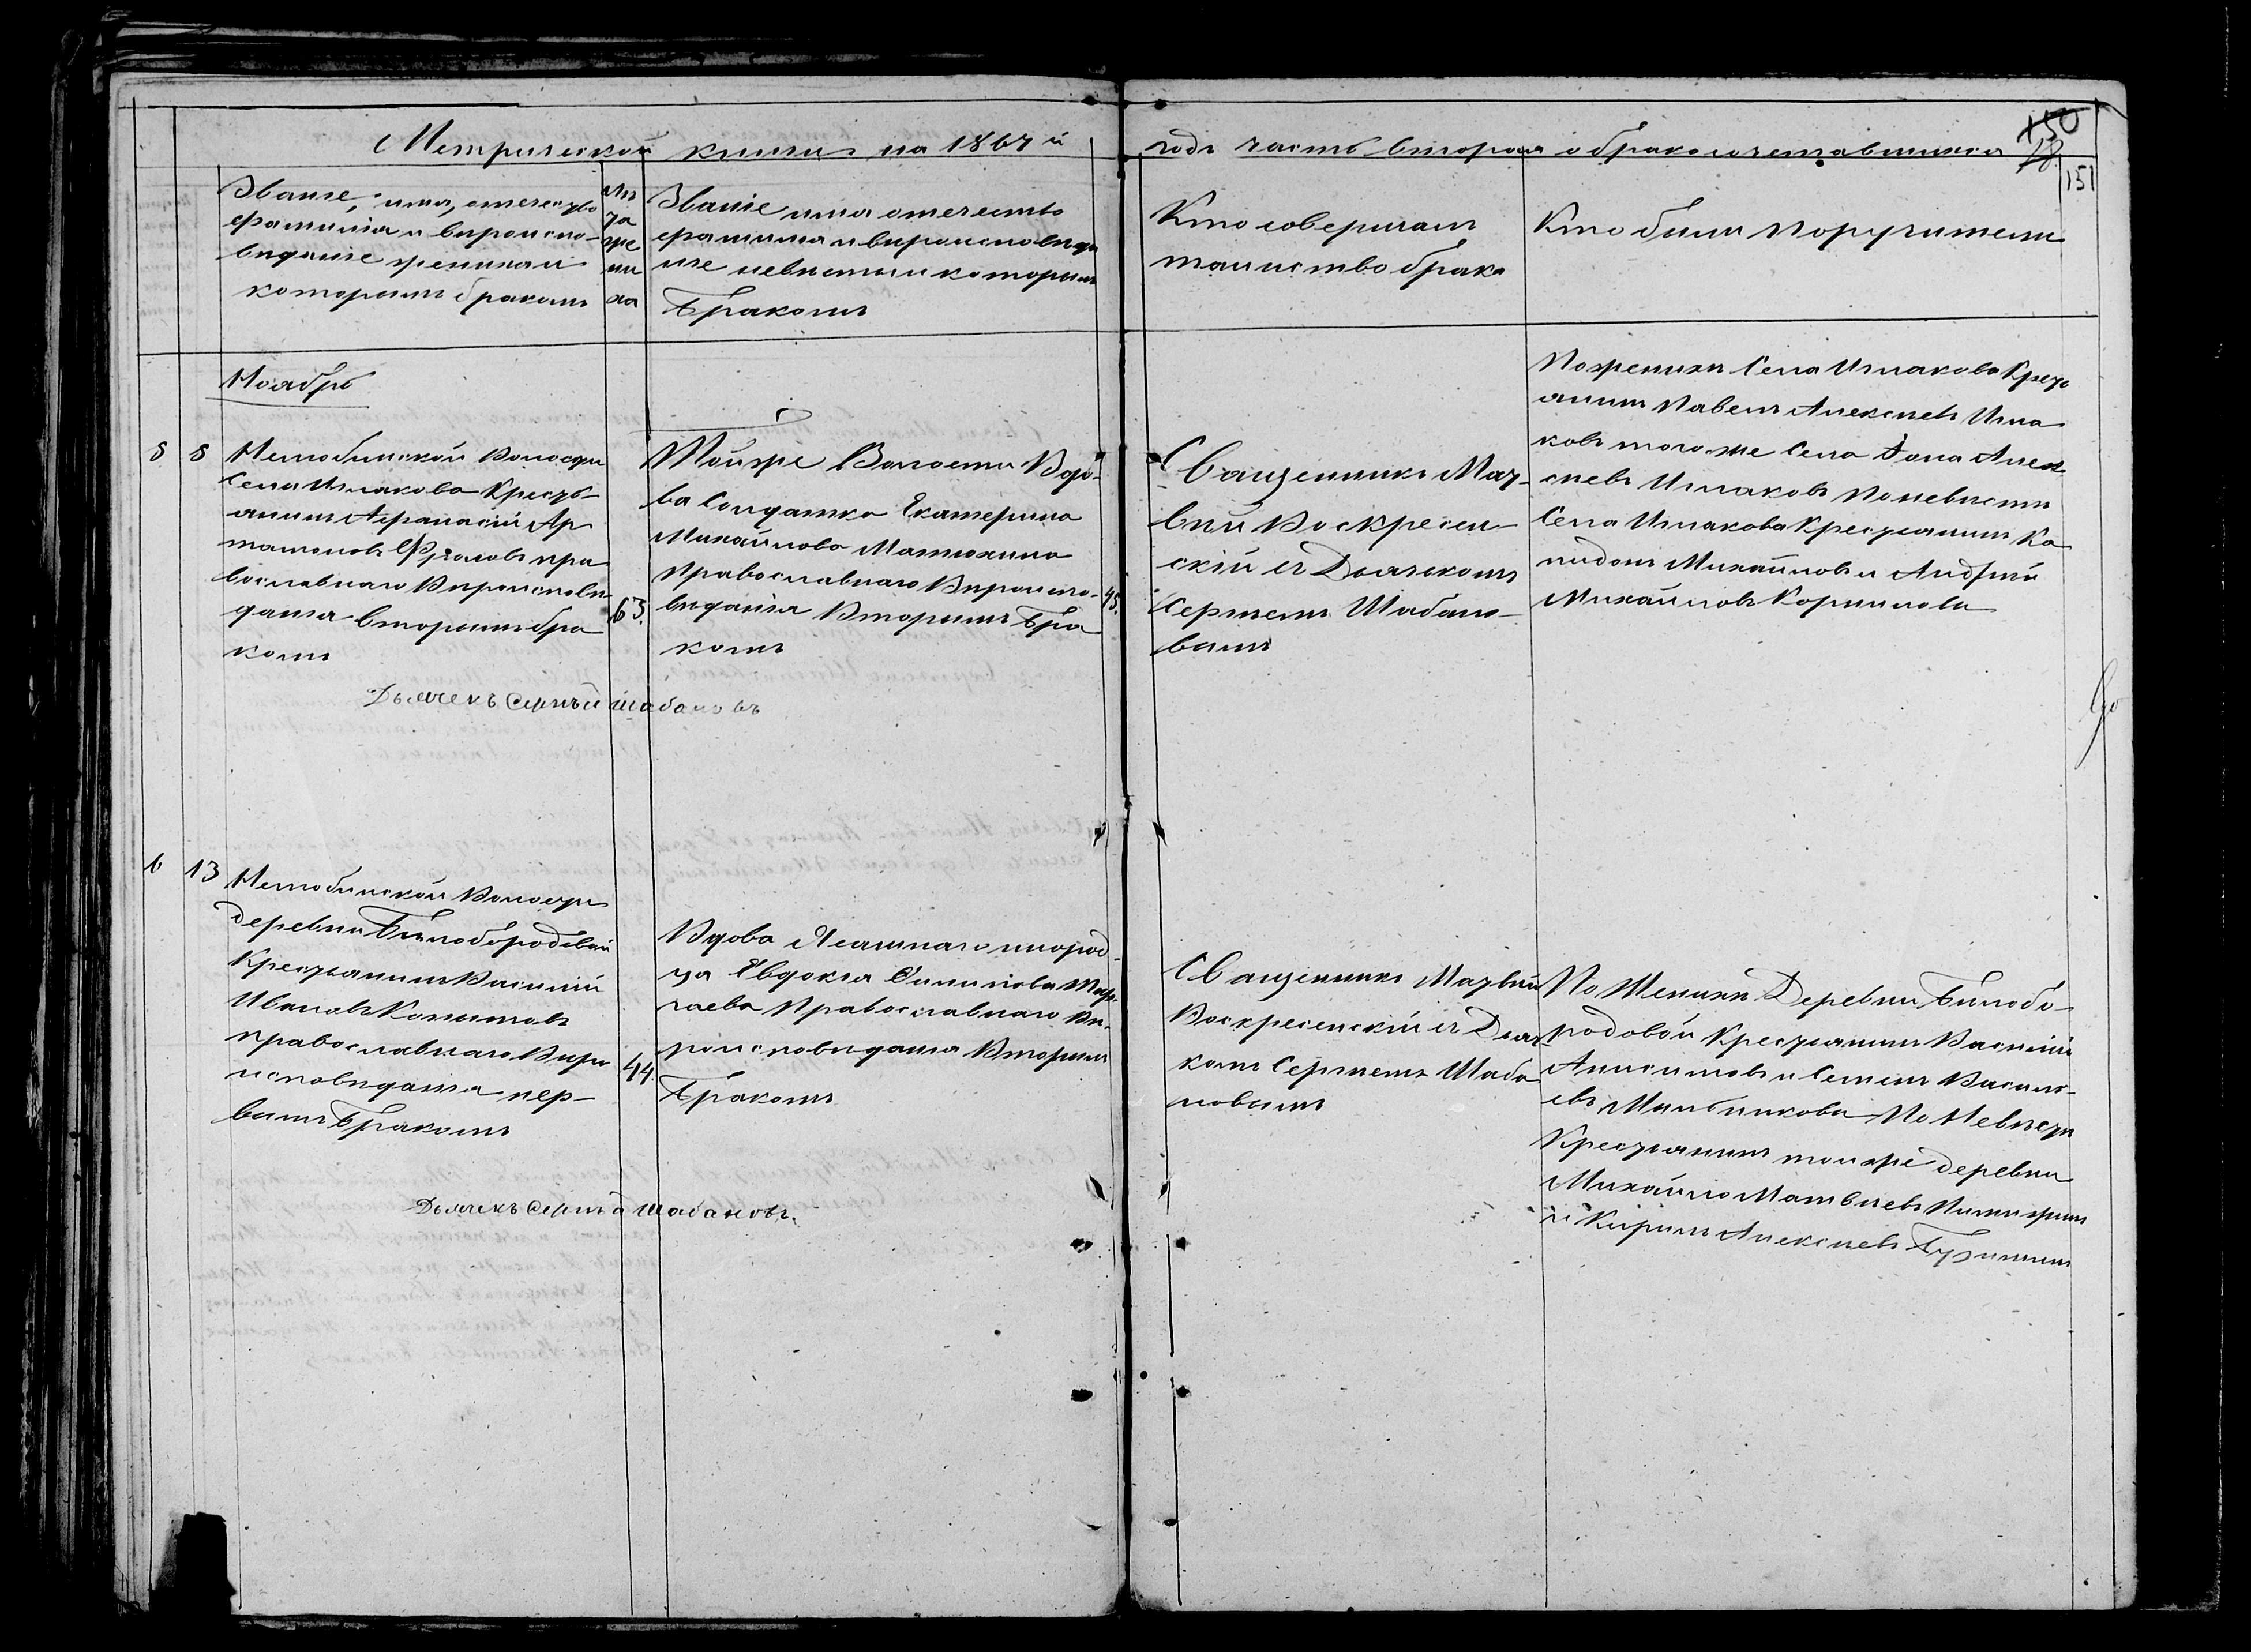 Метрической книги на 1867 й
годъ часть вторая о бракосочетавшихся
150
28.
151
Званіе, имя, отечество
фамилія и вѣроиспо-
вѣданіе жениха и
которымъ бракомъ
Лѣ
та
же
ни
ха
Званіе имя отечество
фамилія и вѣроисповѣда
ніе невѣсты и которымъ
Бракомъ
Кто совершалъ
таинство брака
Кто были поручители
Ноябрь
5 8
Волости
Села Исаакова Кресть
янинъ Афанасій Ар
тамоновъ Фроловъ пра
вославнаго Вѣроисповѣ
данія вторымъ бра
комъ
63.
Тойже Волости Вдо-
ва Солдатка Екатерина
Михайлова Матюхина
Православнаго Вѣроиспо-
вѣданія Вторымъ Бра
комъ
45.
Священникъ Мат-
вѣй Воскресен-
скій съ Дьячкомъ
Сергѣемъ Шабано-
вымъ
По женихѣ Села Исакова Крест
янинъ Павелъ Алексѣевъ Иса
ковъ того же Села Алек
сѣевъ Исаковъ По невѣстѣ
Села Исакова Крестьянинъ Ка
пидонъ Михайловъ и Андрей
Михайловъ Корниловы
Дьячекъ Сергѣй Шабановъ
6 13
Волости
деревни Бѣлобородовой
Крестьянинъ Василій
Ивановъ
православнаго Вѣро
исповѣданія пер-
вымъ Бракомъ
44.
Вдова Ясашнаго инород-
ца Евдокія Филипова
Православнаго Вѣ-
роисповѣданія Вторымъ
Бракомъ
Священникъ Матвѣй
Воскресенскій съ Дьяч
комъ Сергѣемъ Шаба
новымъ
По Женихѣ Деревни Бѣлобо-
родовой Крестьянинъ Василій
Анисимовъ и Семенъ Василь-
евъ Мыльниковы По Невѣстѣ
Крестьянинъ тойже деревни
Михайло Матвѣевъ
и Кирилъ Алексѣевъ
Дьячекъ Сергѣй Шабановъ.